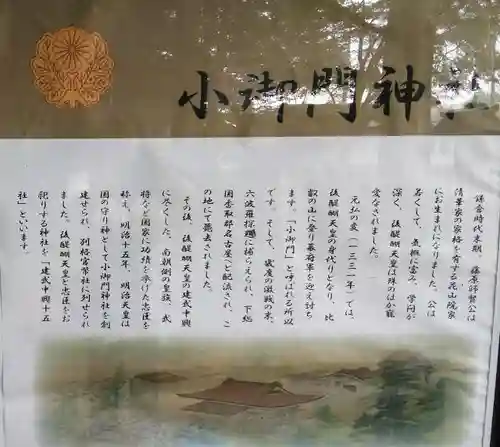 小御門神社
鎌倉時代末期、藤原師賢公は
清華家の家格を有する花山院家
にお生まれになりました。公は
若くして、気概に富み、学問が
深く、後醍醐天皇は殊のほか寵
愛なされました。
元弘の変(一三三一年)では、
後醍醐天皇の身代りとなり、比
叡の山に登り幕府軍を迎え討ち
ます。「小御門」と呼ばれる所以
です。そして、幾度の激戦の末、
六波羅探題に捕らえられ、下総
国香取郡名古屋へと配流され、こ
の地にて薨去されました。
その後、後醍醐天皇の建武中興
に尽くした、南朝側の皇族、武
将など国家に功績を挙げた忠臣を
称え、明治十五年、明治天皇は
国の守り神として小御門神社を創
建せられ、別格官幣社に列せられ
ました。後醍醐天皇と忠臣をお
祀りする神社を「建武中興十五
社」といいます。